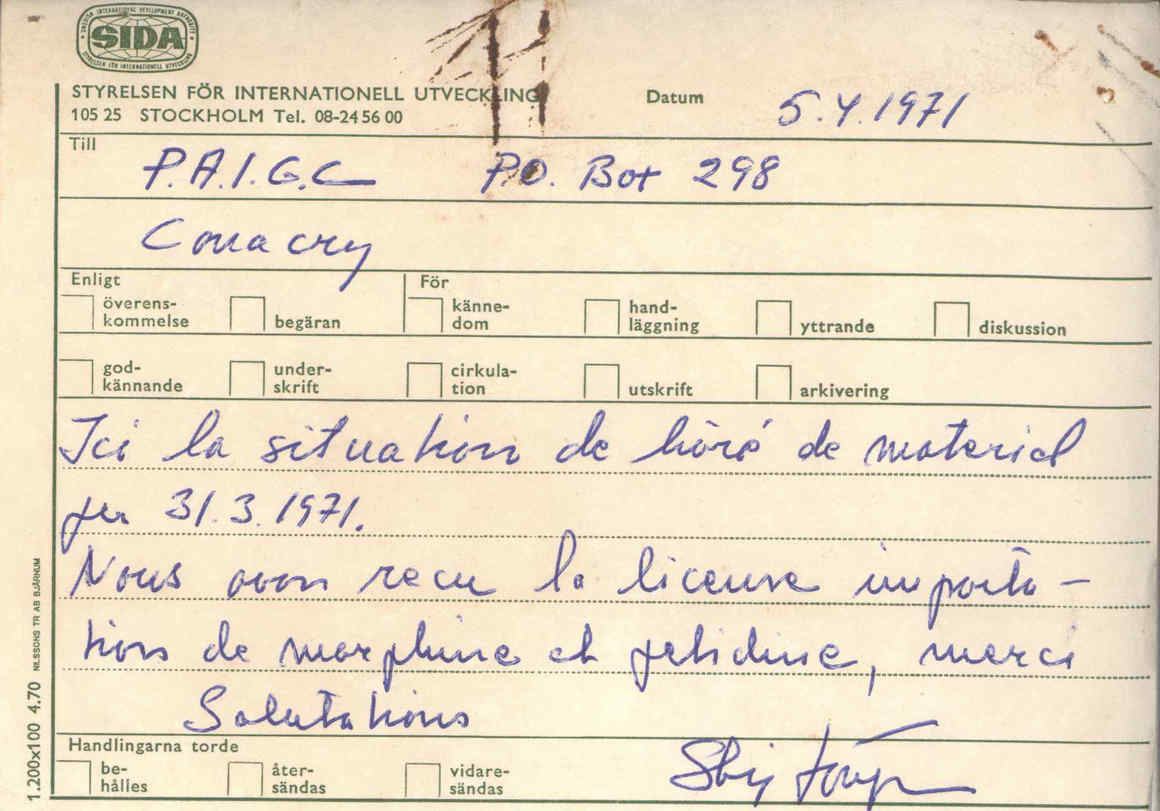 SWEDISH INTERNATIONAL DEVELOPMENT AUTHORITY
SIDA
STYRELSEN FÖR INTERNATIONELL UTVECKLING
STYRELSEN FÖR INTERNATIONELL UTVECKLING
105 25 STOCKHOLM Tel. 08-24 56 00
Datum 5.4.1971
Till
P.A.I.G.C P.O. Box 298
Conacry
Enligt För
överens-kommelse begäran känne-dom hand-läggning yttrande diskussion
god-kännande under-skrift cirkula-tion utskrift arkivering
Ici la situation de de material
per 31.3.1971.
Nous avon recu la license importa-
tion de morphine et petidine, merci
Salutations
Handlingarna torde
be-hålles åter-sändas vidare-sändas
1.200x100 4.70 NILSSONS TR AB BJÄRNUM